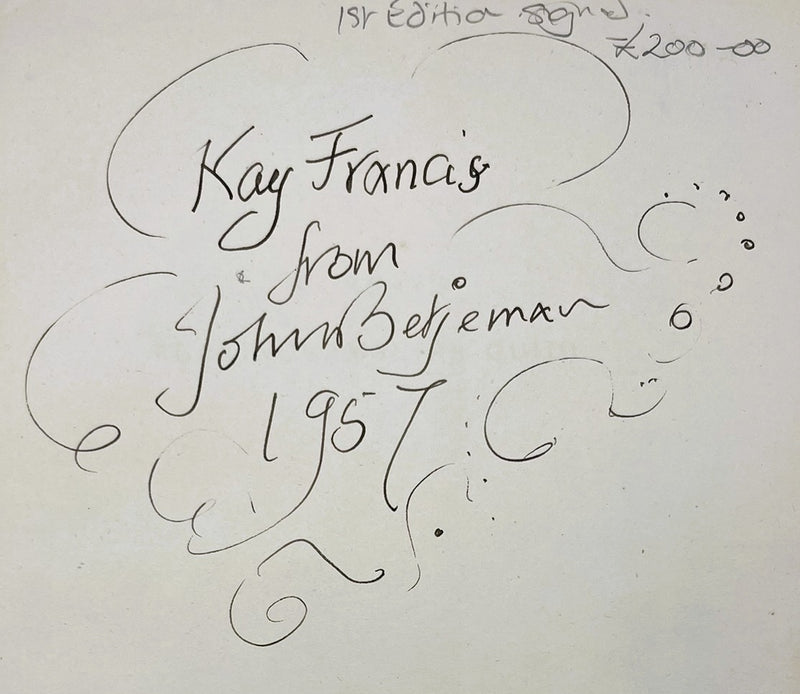 1st Edition signed.
£200-00
Kay Francis
from
John Betjeman
1957